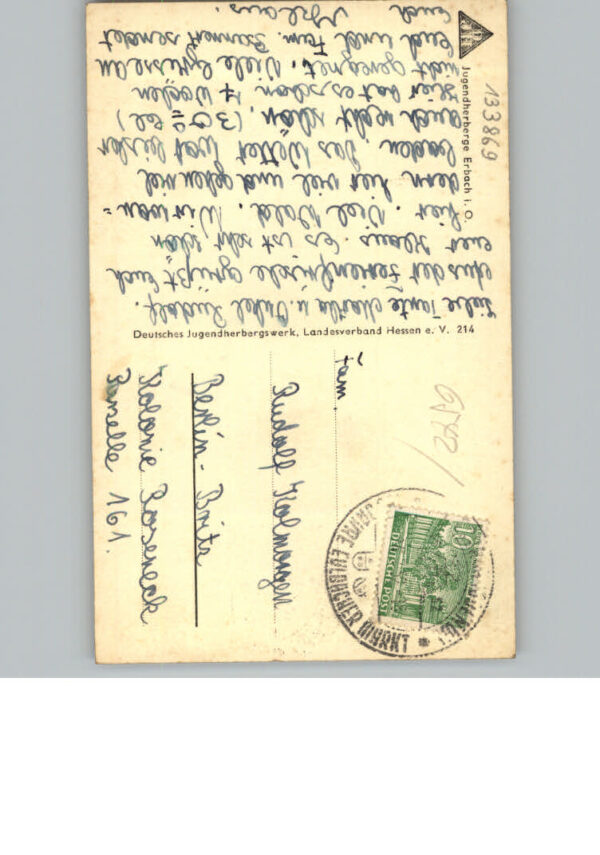 Liebe Tante Martha u. Onkel Rudolf.
Aus der Ferienfrische grüßt Euch
euer Klaus. Es ist sehr schön
hier. Viel Wald. Wir wan=
dern hier viel und gehen viel
baden. Das Wetter war bisher
auch recht schön. (30° Cel)
Hier hat es schon 4 Wochen
nicht geregnet. Viele Grüsse an
Euch und Fam. Bannert sendet
Euch Klaus.
Jugendherberge Erbach i. O.
133869
Deutsches Jugendherbergswerk, Landesverband Hessen e. V. 214
Fam.
Rudolf Kolmorgen
Berlin-Britz
Kolonie Roseneck
Parzelle 161.
10
DEUTSCHE POST
JAHRE EULBACHER MARKT